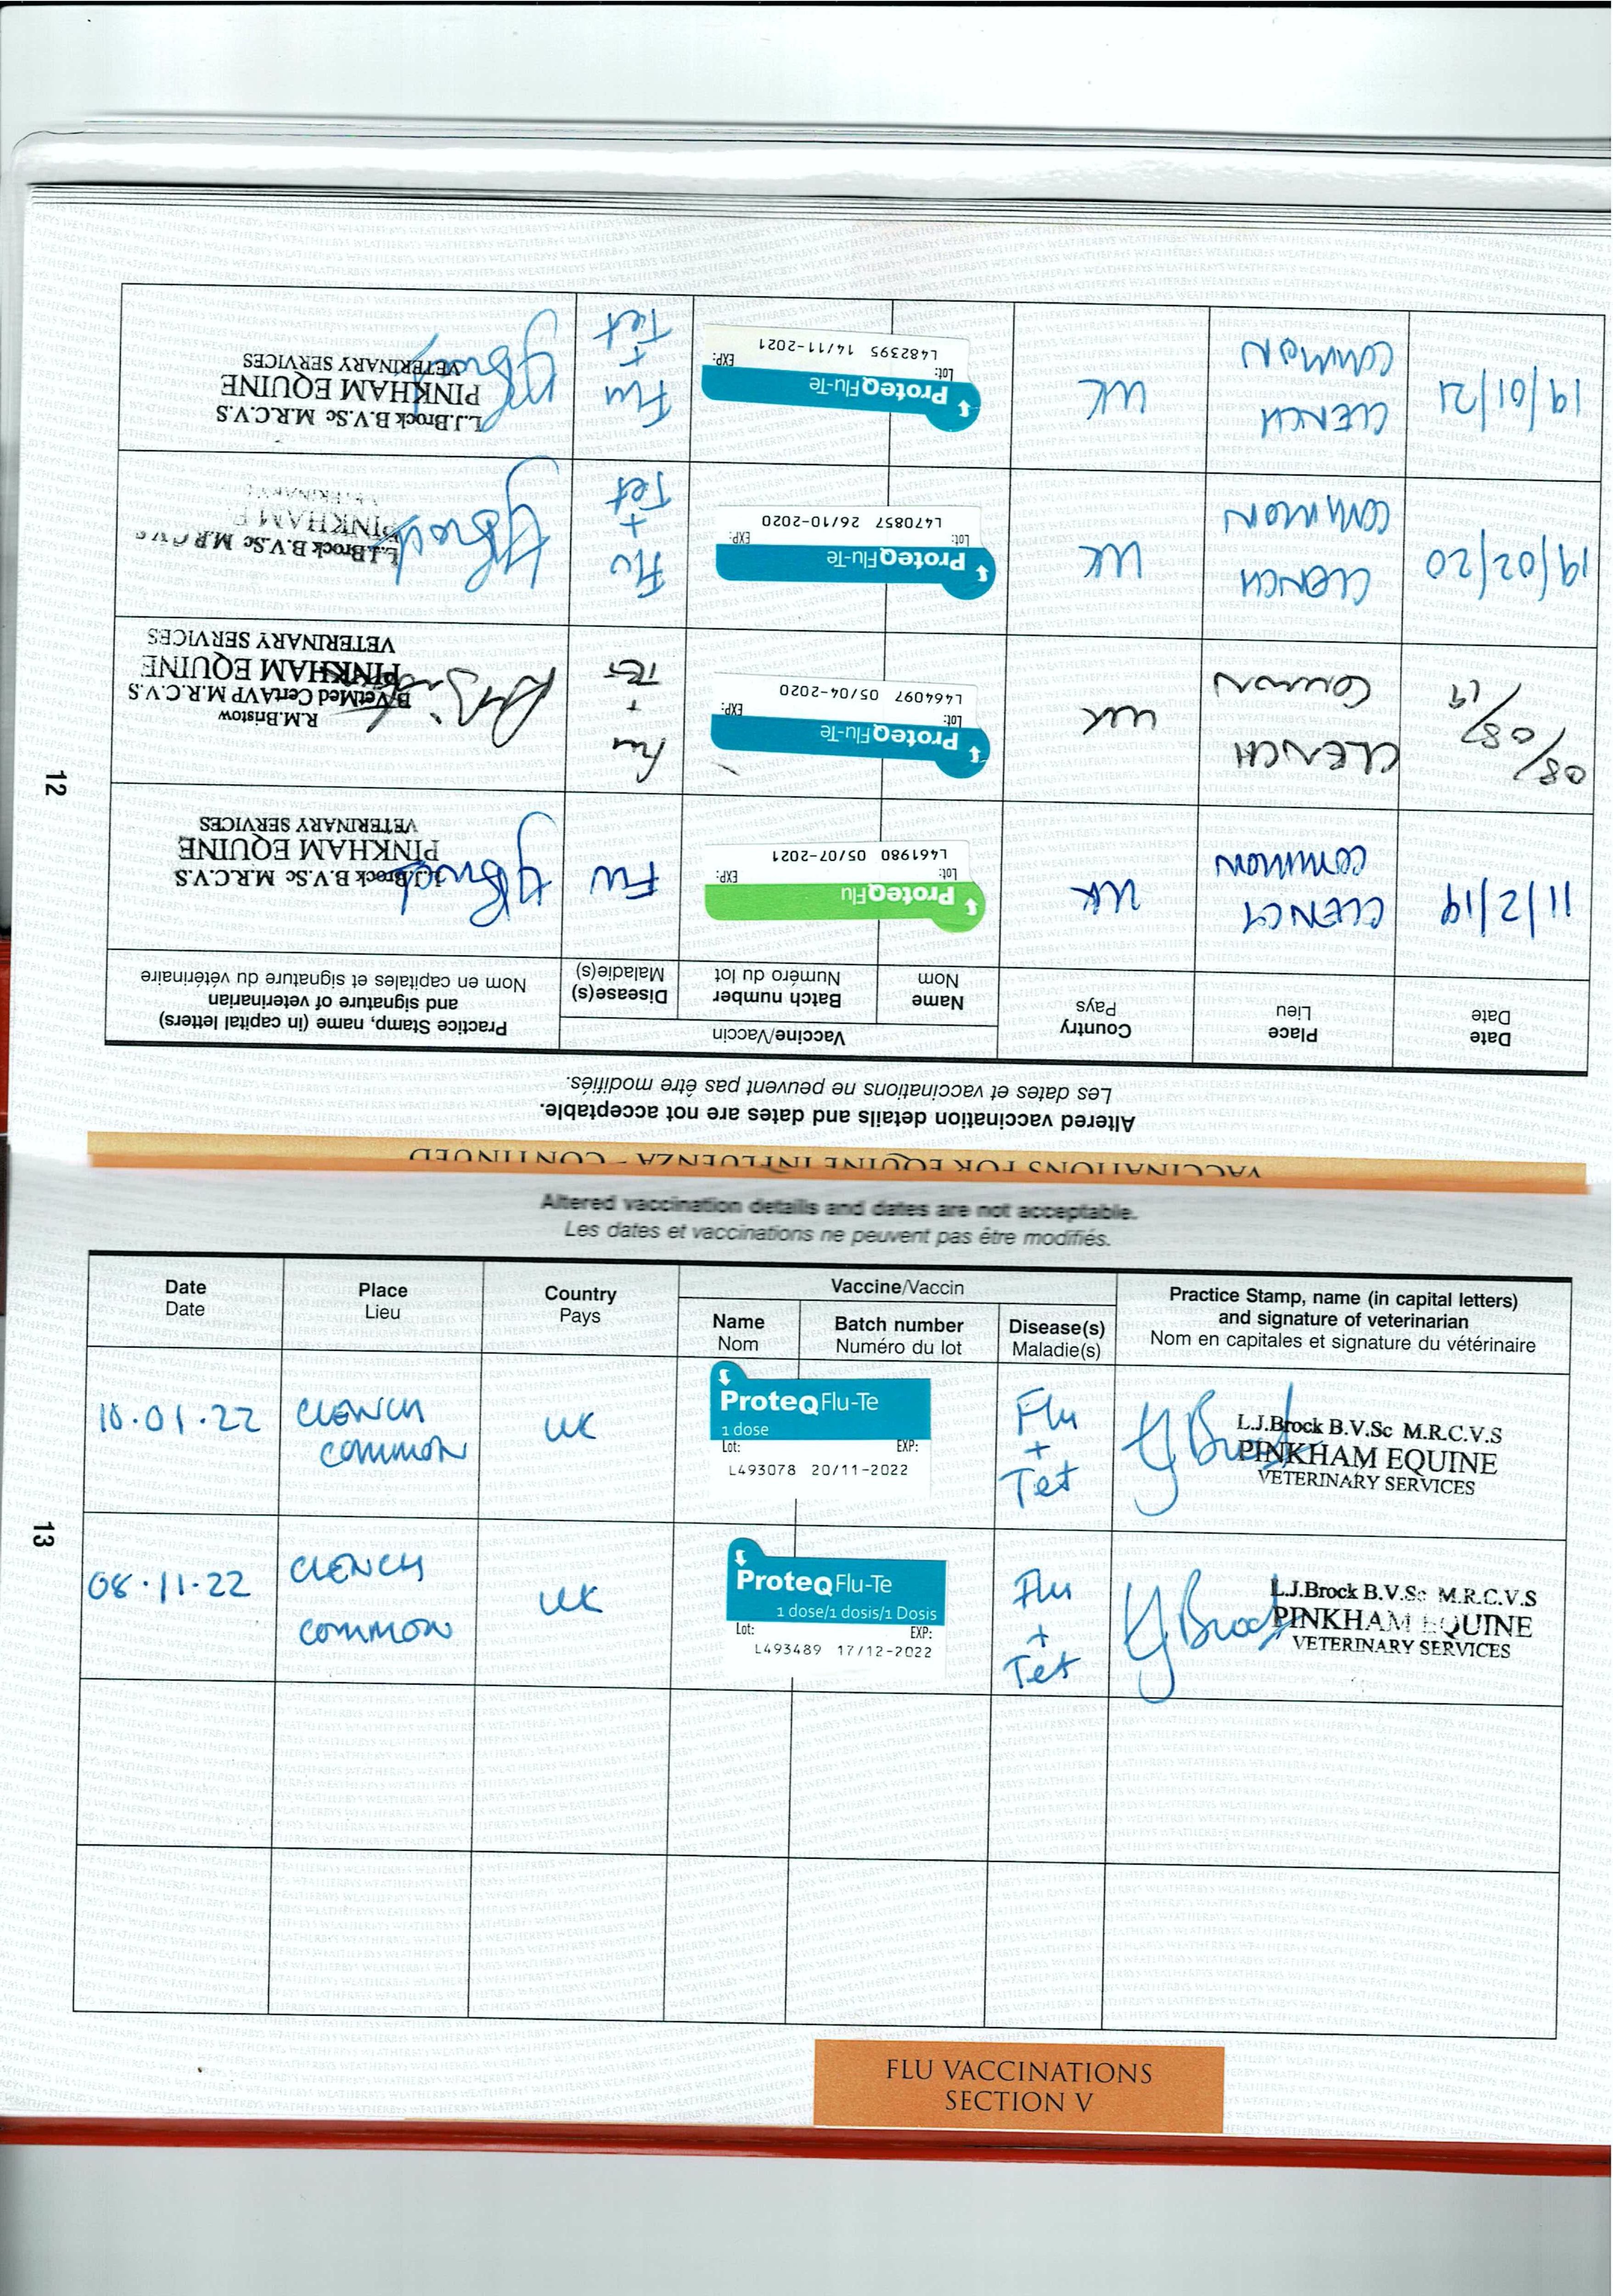 12
VACCINATIONS FOR EQUINE INFLUENZA - CONTINUED
Altered vaccination details and dates are not acceptable.
Les dates et vaccinations ne peuvent pas être modifiés.
Date
Date
Place
Lieu
Country
Pays
Vaccine/Vaccin
Name
Nom
Batch number
Numéro du lot
Disease(s)
Maladie(s)
Practice Stamp, name (in capital letters)
and signature of veterinarian
Nom en capitales et signature du vétérinaire
11/2/19
CLENCH
COMMON
UK
ProteqFlu
Lot: EXP:
L461980 05/07-2021
Flu
L.J.Brock B.V.Sc M.R.C.V.S
PINKHAM EQUINE
VETERINARY SERVICES
08/08/19
CLENCH
COMMON
UK
ProteqFlu-Te
Lot: EXP:
L464097 05/04-2020
Flu
+
TET
R.M.Bristow
B.VetMed CertAVP M.R.C.V.S
PINKHAM EQUINE
VETERINARY SERVICES
19/02/20
CLENCH
COMMON
UK
ProteqFlu-Te
Lot: EXP:
L470857 26/10-2020
Flu
+
Tet
L.J.Brock B.V.Sc M.R.C.V.S
PINKHAM E
VETERINARY
19/01/21
CLENCH
COMMON
UK
ProteqFlu-Te
Lot: EXP:
L482395 14/11-2021
Flu
+
Tet
L.J.Brock B.V.Sc M.R.C.V.S
PINKHAM EQUINE
VETERINARY SERVICES
13
Altered vaccination details and dates are not acceptable.
Les dates et vaccinations ne peuvent pas être modifiés.
Date
Date
Place
Lieu
Country
Pays
Vaccine/Vaccin
Name
Nom
Batch number
Numéro du lot
Disease(s)
Maladie(s)
Practice Stamp, name (in capital letters)
and signature of veterinarian
Nom en capitales et signature du vétérinaire
10.01.22
CLENCH
COMMON
UK
ProteqFlu-Te
1 dose
Lot: EXP:
L493078 20/11-2022
Flu
+
Tet
LJBrock
L.J.Brock B.V.Sc M.R.C.V.S
PINKHAM EQUINE
VETERINARY SERVICES
08.11.22
CLENCH
COMMON
UK
ProteqFlu-Te
1 dose/1 dosis/1 Dosis
Lot: EXP:
L493489 17/12-2022
Flu
+
Tet
LJBrock
L.J.Brock B.V.Sc M.R.C.V.S
PINKHAM EQUINE
VETERINARY SERVICES
FLU VACCINATIONS
SECTION V